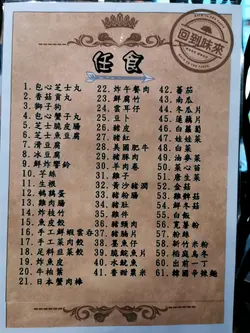 回到味來
任食
1. 包心芝士丸
2. 香菇貢丸
3. 獅子狗
4. 包心蟹子丸
5. 芝士腸皮腸
6. 芝士豆腐
7. 滑豆腐
8. 冰豆腐
9. 鮮炸響鈴
10. 子絲
11. 生根
12. 鵪鶉蛋
13. 雞肉腸
14. 炸枝竹
15. 魚皮餃
16. 手工鮮蝦雲吞
17. 手工菜肉餃
18. 足料韭菜餃
19. 炸魚皮
20. 牛柏葉
21. 日本蟹肉棒
22. 炸午餐肉
23. 鮮腐竹
24. 雲耳仔
25. 豆卜
26. 豬皮
27. 豬紅
28. 美國肥牛
29. 豬頸肉
30. 羊肉卷
31. 雞子
32. 青沙豬潤
33. 豬粉腸
34. 雞翼
35. 雞件
36. 豬頸肉
37. 豬腦片
38. 墨魚仔
39. 魷魚
40. 水魷魚
41. 香甜粟米
42. 蕃茄
43. 南瓜
44. 冬瓜片
45. 蓮藕片
46. 白蘿蔔
47. 娃娃菜
48. 白菜
49. 油麥菜
50. 菜心苗
51. 唐生菜
52. 金菇
53. 鮮菇
54. 鮮冬菇
55. 白飯
56. 寬薯粉
57. 粉絲
58. 新竹米粉
59. 稻庭烏冬
60. 出前一丁
61. 韓國辛辣麵